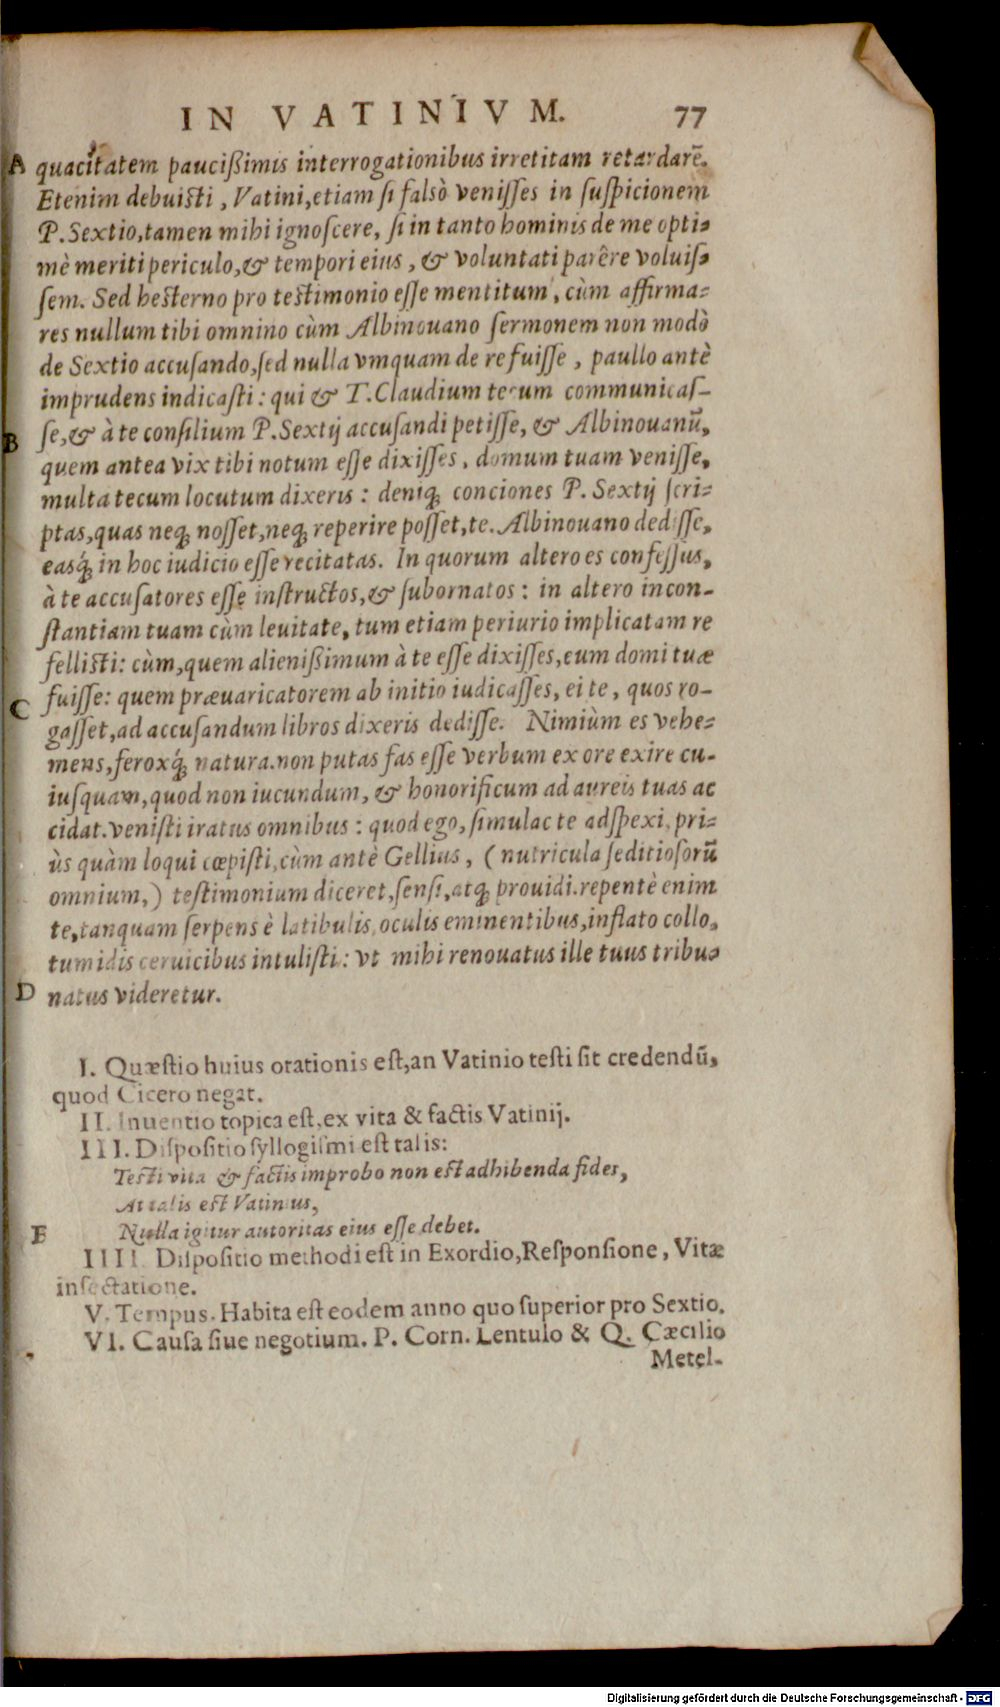 IN VATINIVM. 77
A quacitatem paucißimis interrogationibus irretitam retardarē.
Etenim debuisti, Vatini, etiam si falsò venisses in suspicionem
P. Sextio, tamen mihi ignoscere, si in tanto hominis de me opti-
mè meriti periculo, & tempori eius, & voluntati parêre voluis-
sem. Sed hesterno pro testimonio esse mentitum, cùm affirma-
res nullum tibi omnino cùm Albinouano sermonem non modò
de Sextio accusando, sed nulla vmquam de re fuisse, paullo antè
imprudens indicasti: qui & T. Claudium tecum communicas-
se, & à te consilium P. Sextij accusandi petisse, & Albinouanū,
B quem antea vix tibi notum esse dixisses, domum tuam venisse,
multa tecum locutum dixeris: deniq; conciones P. Sextij scri-
ptas, quas neq; nosset, neq; reperire posset, te. Albinouano dedisse,
easq́; in hoc iudicio esse recitatas. In quorum altero es confessus,
à te accusatores esse instructos, & subornatos: in altero incon-
stantiam tuam cùm leuitate, tum etiam periurio implicatam re
fellisti: cùm, quem alienißimum à te esse dixisses, eum domi tuæ
fuisse: quem præuaricatorem ab initio iudicasses, ei te, quos ro-
C gasset, ad accusandum libros dixeris dedisse. Nimiùm es vehe-
mens, feroxq́; natura. non putas fas esse verbum ex ore exire cu-
iusquam, quod non iucundum, & honorificum ad aureis tuas ac
cidat. venisti iratus omnibus: quod ego, simulac te adspexi, pri-
ùs quàm loqui cœpisti, cùm antè Gellius, (nutricula seditiosorū
omnium,) testimonium diceret, sensi, atq; prouidi. repentè enim
te, tanquam serpens è latibulis, oculis eminentibus, inflato collo,
tumidis ceruicibus intulisti: vt mihi renouatus ille tuus tribu-
D natus videretur.
I. Quæstio huius orationis est, an Vatinio testi sit credendū,
quod Cicero negat.
II. Inuentio topica est, ex vita & factis Vatinij.
III. Dispositio syllogismi est talis:
Testi vita & factis improbo non est adhibenda fides,
At talis est Vatinius,
E Nulla igitur autoritas eius esse debet.
IIII. Dispositio methodi est in Exordio, Responsione, Vitæ
insectatione.
V. Tempus. Habita est eodem anno quo superior pro Sextio.
VI. Causa siue negotium. P. Corn. Lentulo & Q. Cæcilio
Metel-
Digitalisierung gefördert durch die Deutsche Forschungsgemeinschaft - DFG